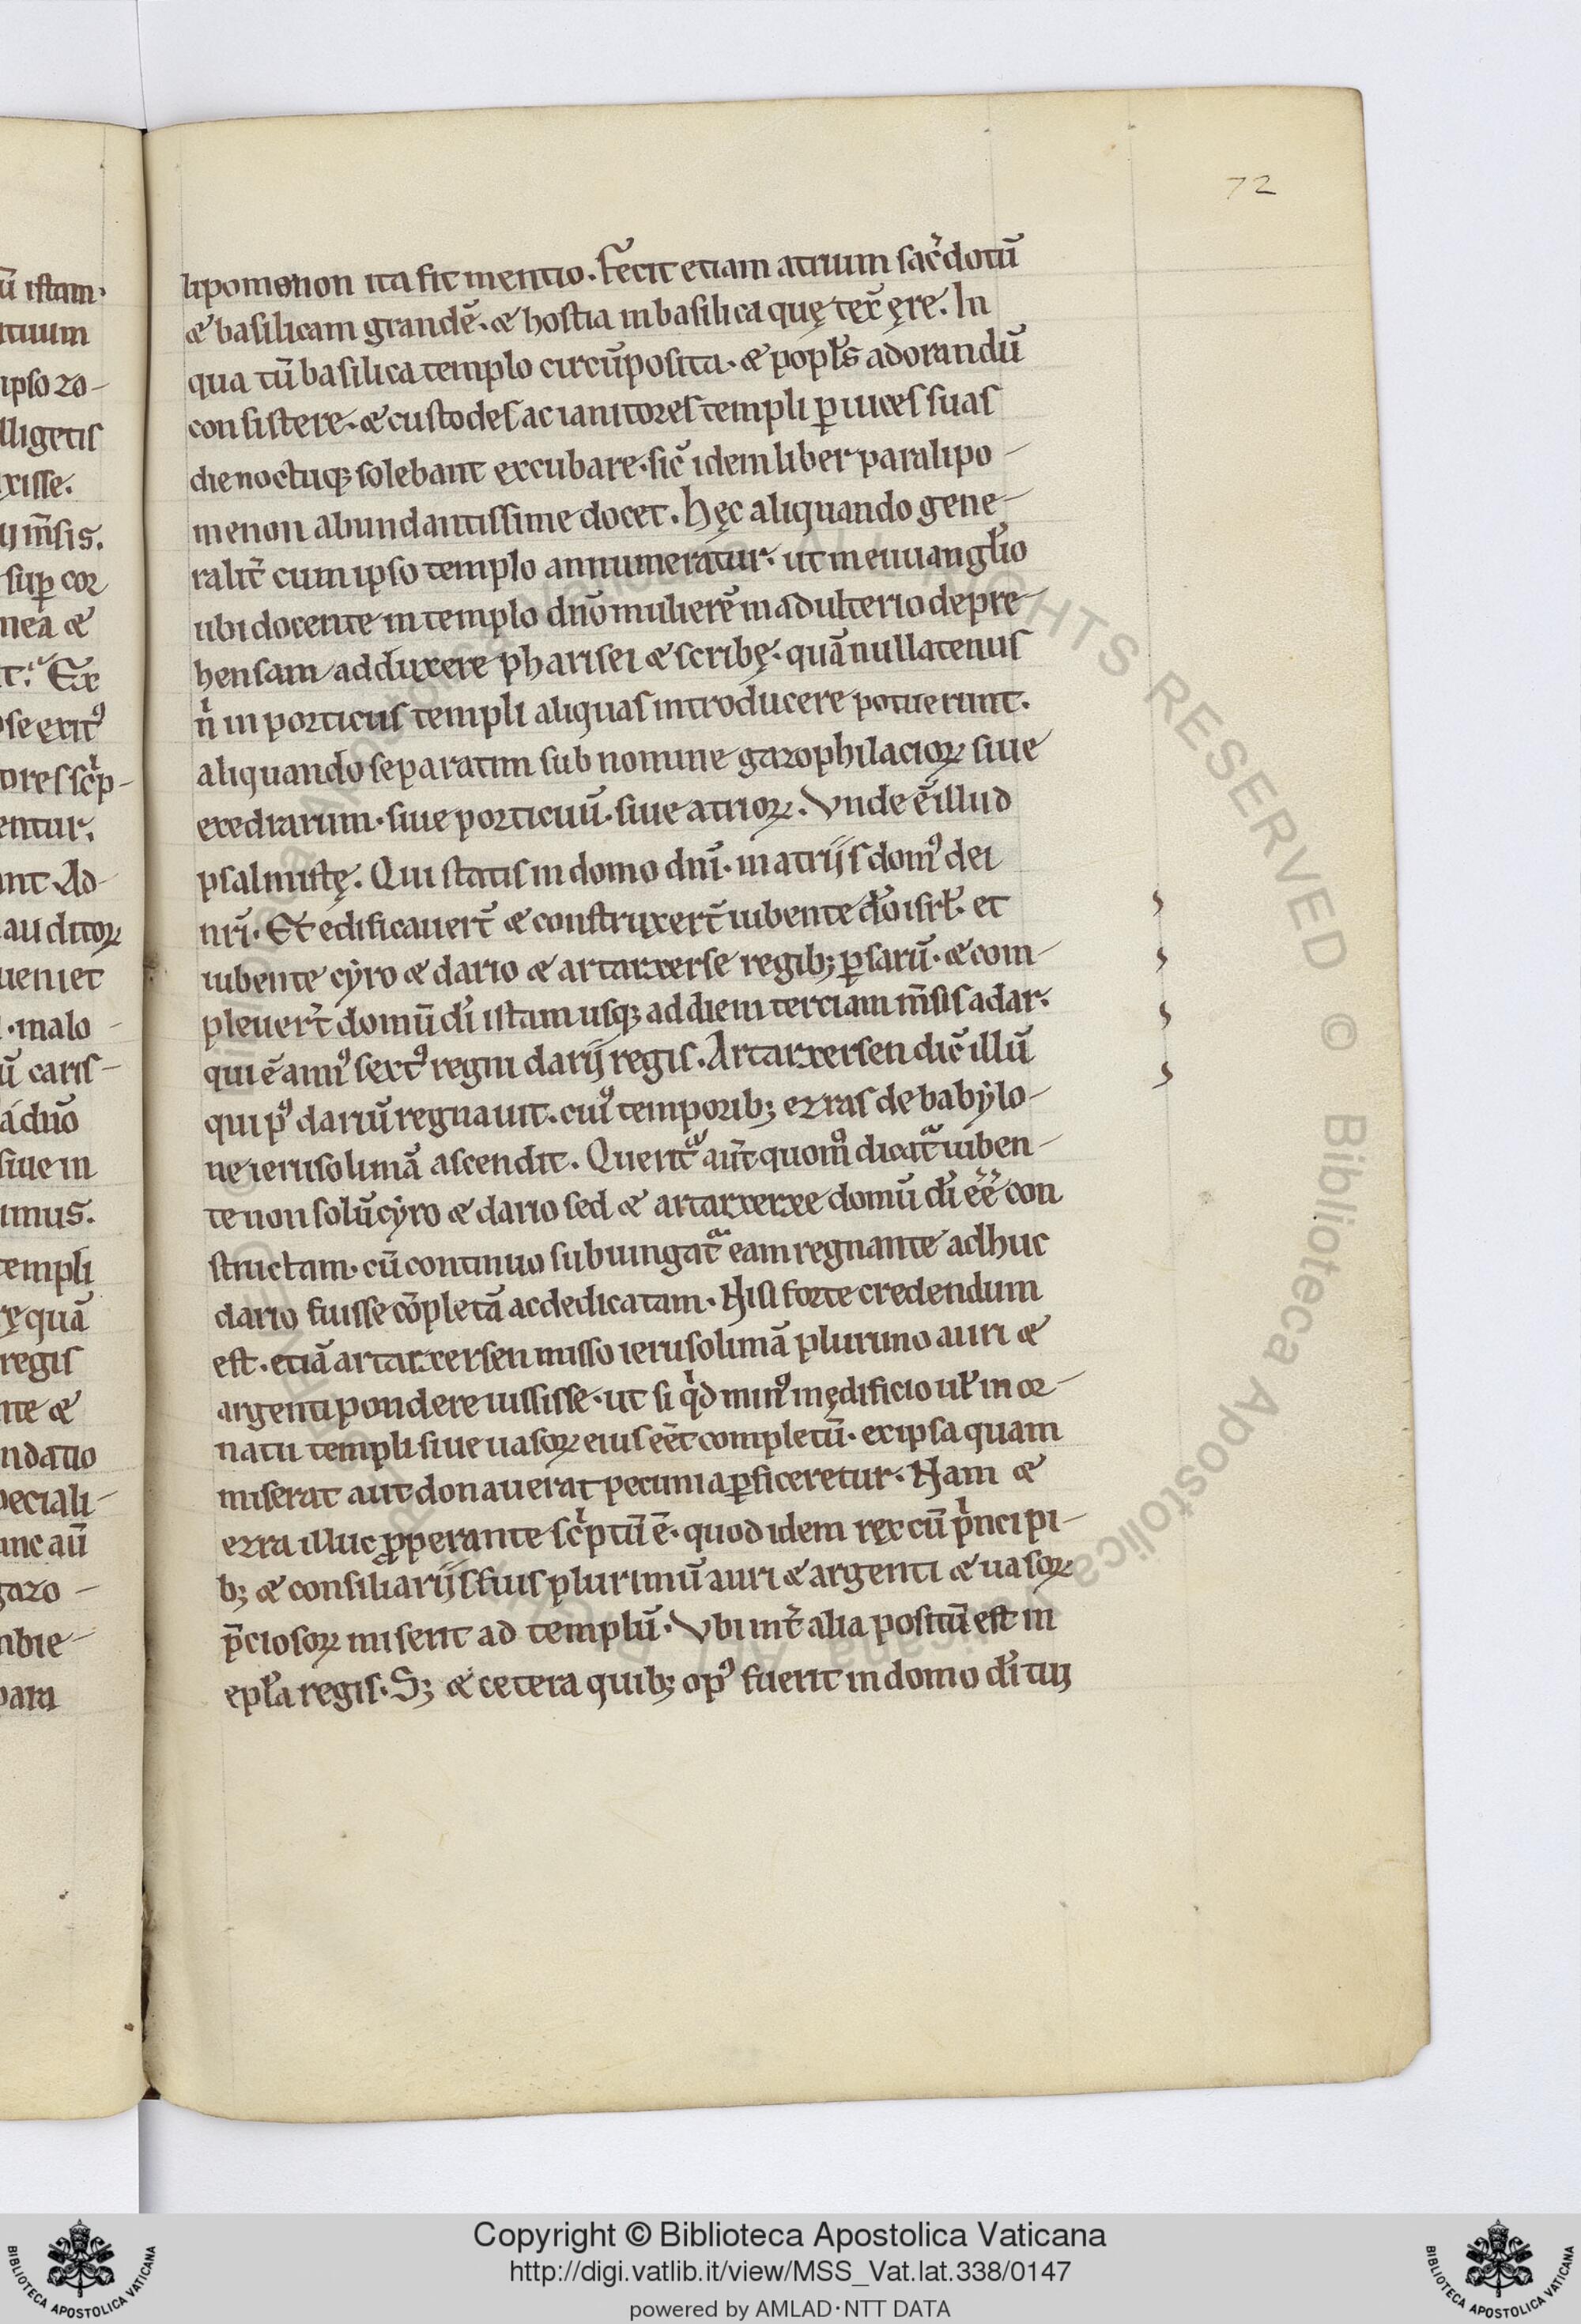 72
lipomenon ita fit mentio. Fecit etiam atrium sac̄dotū
& basilicam grandē. & hostia in basilica quę tex̄ ęre. In
qua tū basilica templo circūposita. & popl̄s adorandū
consistere. & custodes ac ianitores templi p̱ uices suas
die noctuq; solebant excubare. sic̄ idem liber paralipo-
menon abundantissime docet. Hęc aliquando gene-
ralit̄ cum ipso templo annumeratur. ut in euuangl̄io
ubi docente in templo dn̄o mulierē in adulterio depre-
hensam adduxere pharisei & scribę. quā nullatenus
n̄ in porticus templi aliquas introducere potuerunt.
aliquando separatim sub nomine gazophilacioꝝ siue
exedrarum. siue porticuū. siue atrioꝝ. Vnde ē illud
psalmistę. Qui statis in domo dn̄i. in atrijs domꝰ dei
nr̄i. Et edificauer̄t & construxer̄t iubente dō isrl̄. et
iubente cyro & dario & artarxerse regib; p̱sarū. & com-
pleuer̄t domū dī istam usq; ad diem terciam m̄sis adar.
qui ē annꝰ sextꝰ regni darij regis. Artarxersen dic̄ illū
qui pꝰ dariū regnauit. cuiꝰ temporib; ezras de babylo-
ne ierusolimā ascendit. Querit᷑ aut̄ quom̊ dicat᷑ iuben-
te non solū cyro & dario sed & artarxerxe domū dī ēē con
structam. cū continuo subiungat᷑ eam regnante adhuc
dario fuisse cōpletā ac dedicatam. Nisi forte credendum
est. etiā artarxersen misso ierusolimā plurimo auri &
argenti pondere iussisse. ut si qͥd minꝰ in ędificio ul̄ in or-
natu templi siue uasoꝝ eius eēt completū. ex ipsa quam
miserat aut donauerat pecunia p̱ficeretur. Nam &
ezra illuc ꝓperante scͥptū ē. quod idem rex cū pͥncipi-
b; & consiliarijs eius plurimū auri & argenti & uasoꝝ
p̄ciosoꝝ miserit ad templū. Vbi int̄ alia positū est in
epl̄a regis. S; & cetera quib; opꝰ fuerit in domo dī tui
Copyright © Biblioteca Apostolica Vaticana
http://digi.vatlib.it/view/MSS_Vat.lat.338/0147
powered by AMLAD·NTT DATA